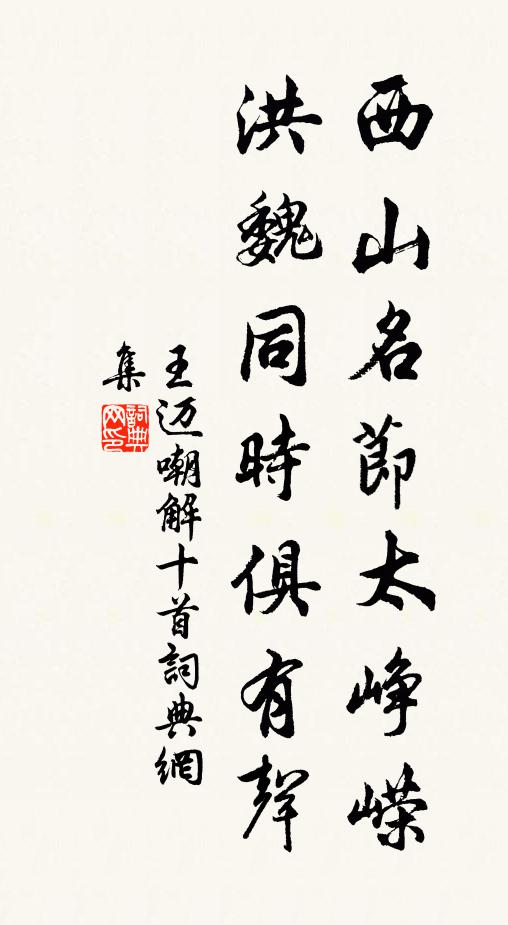 西山名節太崢嶸
洪魏同時俱有聲
王迈嘲解十首詞典網
集
詞典
网印